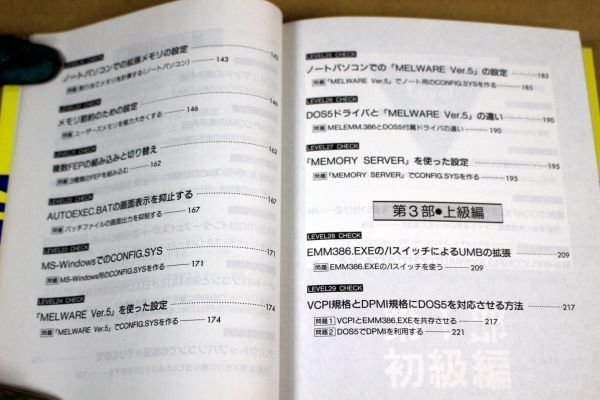 CHECK
ノートパソコンでの拡張メモリの設定 143
問題 割り当てメモリを計算する(ノートパソコン) 143
CHECK
メモリ節約のための設定 146
問題 ユーザーズメモリを極力大きくする 146
CHECK
複数FEPの組み込みと切り替え 162
問題 3種類のFEPを組み込む 162
CHECK
AUTOEXEC.BATの画面表示を抑止する 167
問題 バッチファイルの画面出力を抑制する 167
LEVEL23 CHECK
MS-WindowsでのCONFIG.SYS 171
問題 MS-Windows用のCONFIG.SYSを作る 171
LEVEL24 CHECK
「MELWARE Ver.5」を使った設定 174
問題 「MELWARE Ver.5」でCONFIG.SYSを作る 174
LEVEL25 CHECK
ノートパソコンでの「MELWARE Ver.5」の設定 185
問題 「MELWARE Ver.5」でノート用のCONFIG.SYSを作る 185
LEVEL26 CHECK
DOS5ドライバと「MELWARE Ver.5」の違い 190
問題 MELEMM.386とDOS5付属ドライバの違い 190
LEVEL27 CHECK
「MEMORY SERVER」を使った設定 195
問題 「MEMORY SERVER」でCONFIG.SYSを作る 195
第3部●上級編
LEVEL28 CHECK
EMM386.EXEの/Iスイッチによる UMBの拡張 209
問題 EMM386.EXEの/Iスイッチを使う 209
LEVEL29 CHECK
VCPI規格とDPMI規格にDOS5を対応させる方法 217
問題1 VCPIとEMM386.EXEを共存させる 217
問題2 DOS5でDPMIを利用する 221
初級編